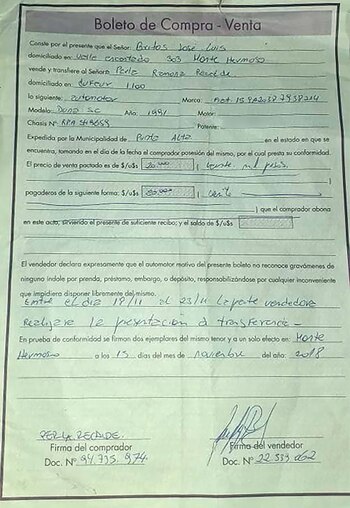 Boleto de Compra - Venta
Conste por el presente que el Señor: Jose Luis
domiciliado en: Valle encantado 303 Monte Hermoso
vende y transfiere al Señor: Perla Ramona Recalde
domiciliado en 1.100
lo siguiente: automotor Marca: Fiat
Modelo: Año: 1991 Motor:
Chasis Nº Patente:
Expedida por la Municipalidad de Punta Alta en el estado en que se
encuentra, tomando en el día de la fecha el comprador posesión del mismo, por el cual presta su conformidad.
El precio de venta pactado es de $/u$s 20.000 ( veinte mil pesos
pagaderos de la siguiente forma: $/u$s 20.000 ( veinte
) que el comprador abona
en este acto, sirviendo el presente de suficiente recibo; y el saldo $/u$s
El vendedor declara expresamente que el automotor motivo del presente boleto no reconoce gravámenes de
ninguna índole por prenda, préstamo, embargo, o depósito, responsabilizándose por cualquier inconveniente
que impidiera disponer libremente del mismo.
Entre el dia 19/11 al 23/11 la parte vendedora
Realizara la presentacion d transferencia -
En prueba de conformidad se firman dos ejemplares del mismo tenor y a un solo efecto en: Monte
Hermoso a los 15 días del mes de noviembre del año 2018
PERLA RECALDE.
Firma del comprador Firma del vendedor
Doc. Nº 94.735.974 Doc. Nº 22.539.062